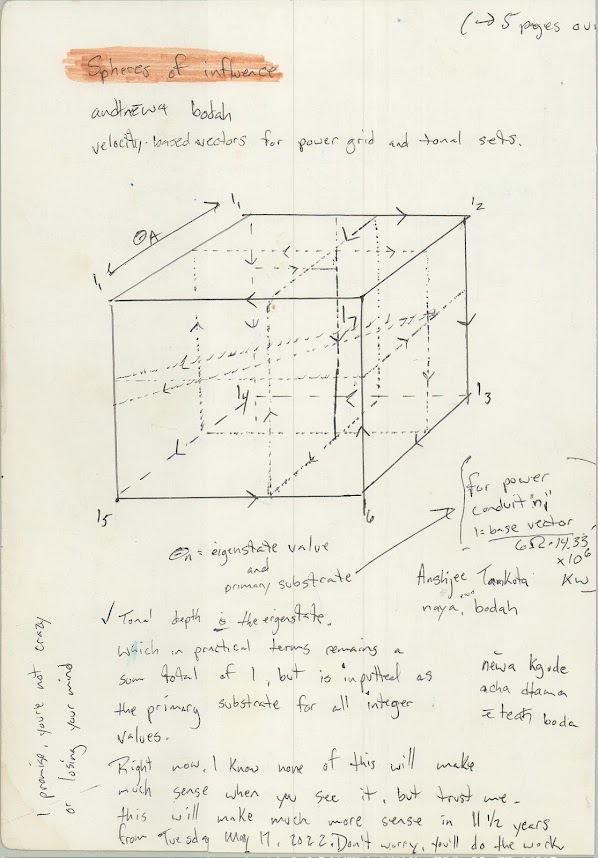 (→ 5 pages ou
Spheres of influence
bodah
velocity-based vectors for power grid and tonal sets.
1₁
1₂
ΘA
1₁
1₇
1₄
1₃
1₅
1₆
for power
conduit "n₁"
1=base vector
6Ω·14.33
×10⁶
KW
Θn = eigenstate value
and
primary substrate
Anshjee Tamkota
naya, bodah
✓ Tonal depth is the eigenstate,
which in practical terms remains a
sum total of 1, but is inputted as
the primary substrate for all integer
values.
nēwa
acha
boda
Right now, I know none of this will make
much sense when you see it, but trust me-
this will make much more sense in 11 1/2 years
from Tuesday May 17, 2022. Don't worry, you'll do the work
I promise, you're not crazy
or losing your mind